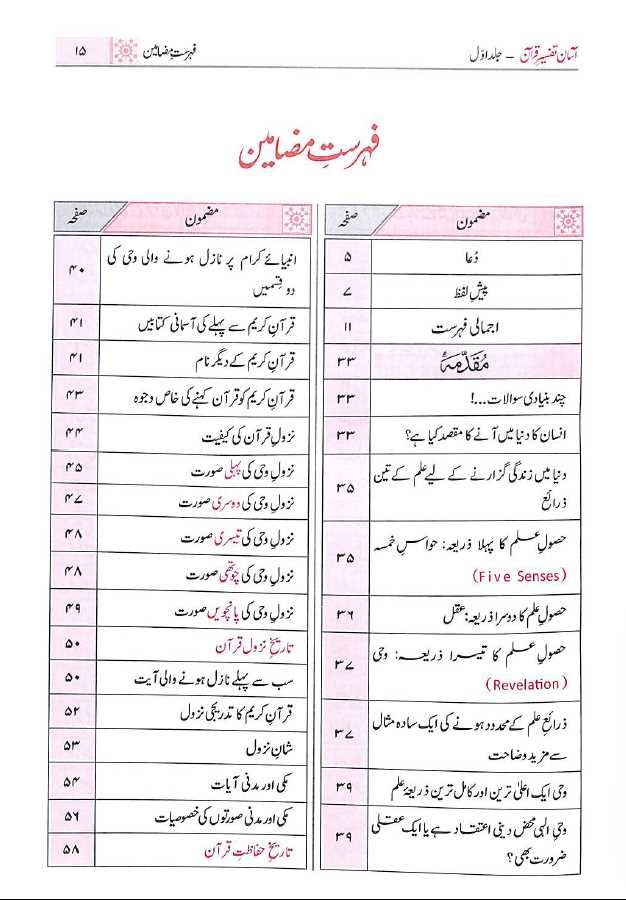 آسان تفسیرِ قرآن – جلد اوّل
فہرستِ مضامین
۱۵
فہرستِ مضامین
مضمون صفحہ
دُعا ۵
پیش لفظ ۷
اجمالی فہرست ۱۱
مُقَدِّمَہ ۳۳
چند بنیادی سوالات...! ۳۳
انسان کا دنیا میں آنے کا مقصد کیا ہے؟ ۳۳
دنیا میں زندگی گزارنے کے لیے علم کے تین
ذرائع ۳۵
حصولِ علم کا پہلا ذریعہ: حواسِ خمسہ
(Five Senses) ۳۵
حصولِ علم کا دوسرا ذریعہ: عقل ۳۶
حصولِ علم کا تیسرا ذریعہ: وحی
(Revelation) ۳۷
ذرائعِ علم کے محدود ہونے کی ایک سادہ مثال
سے مزید وضاحت ۳۷
وحی ایک اعلیٰ ترین اور کامل ترین ذریعۂ علم ۳۹
وحیِ الٰہی محض دینی اعتقاد ہے یا ایک عقلی
ضرورت بھی؟ ۳۹
مضمون صفحہ
انبیائے کرام پر نازل ہونے والی وحی کی
دو قسمیں ۴۰
قرآنِ کریم سے پہلے کی آسمانی کتابیں ۴۱
قرآنِ کریم کے دیگر نام ۴۱
قرآنِ کریم کو قرآن کہنے کی خاص وجوہ ۴۳
نزولِ قرآن کی کیفیت ۴۴
نزولِ وحی کی پہلی صورت ۴۵
نزولِ وحی کی دوسری صورت ۴۷
نزولِ وحی کی تیسری صورت ۴۸
نزولِ وحی کی چوتھی صورت ۴۸
نزولِ وحی کی پانچویں صورت ۴۹
تاریخِ نزولِ قرآن ۵۰
سب سے پہلے نازل ہونے والی آیت ۵۰
قرآنِ کریم کا تدریجی نزول ۵۲
شانِ نزول ۵۳
مکی اور مدنی آیات ۵۴
مکی اور مدنی صورتوں کی خصوصیات ۵۶
تاریخِ حفاظتِ قرآن ۵۸